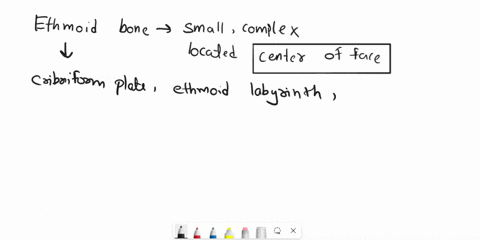 Ethmoid bone → small, complex
located center of face
↓
cribriform plate, ethmoid labyrinth,